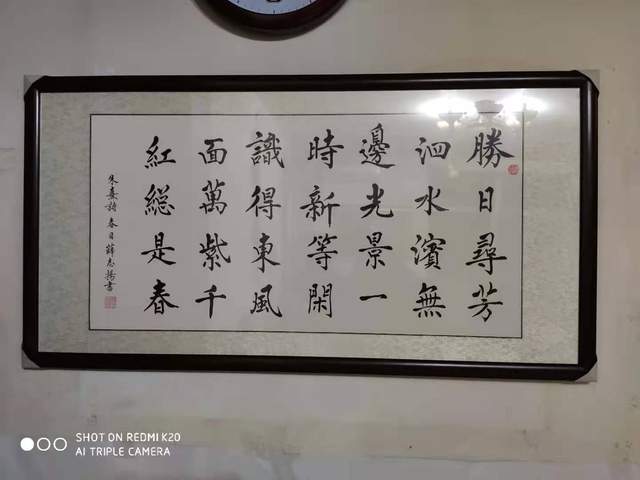 勝日尋芳
泗水濱無
邊光景一
時新等閑
識得東風
面萬紫千
紅総是春
朱熹詩 春日 薛志揚書
SHOT ON REDMI K20
AI TRIPLE CAMERA